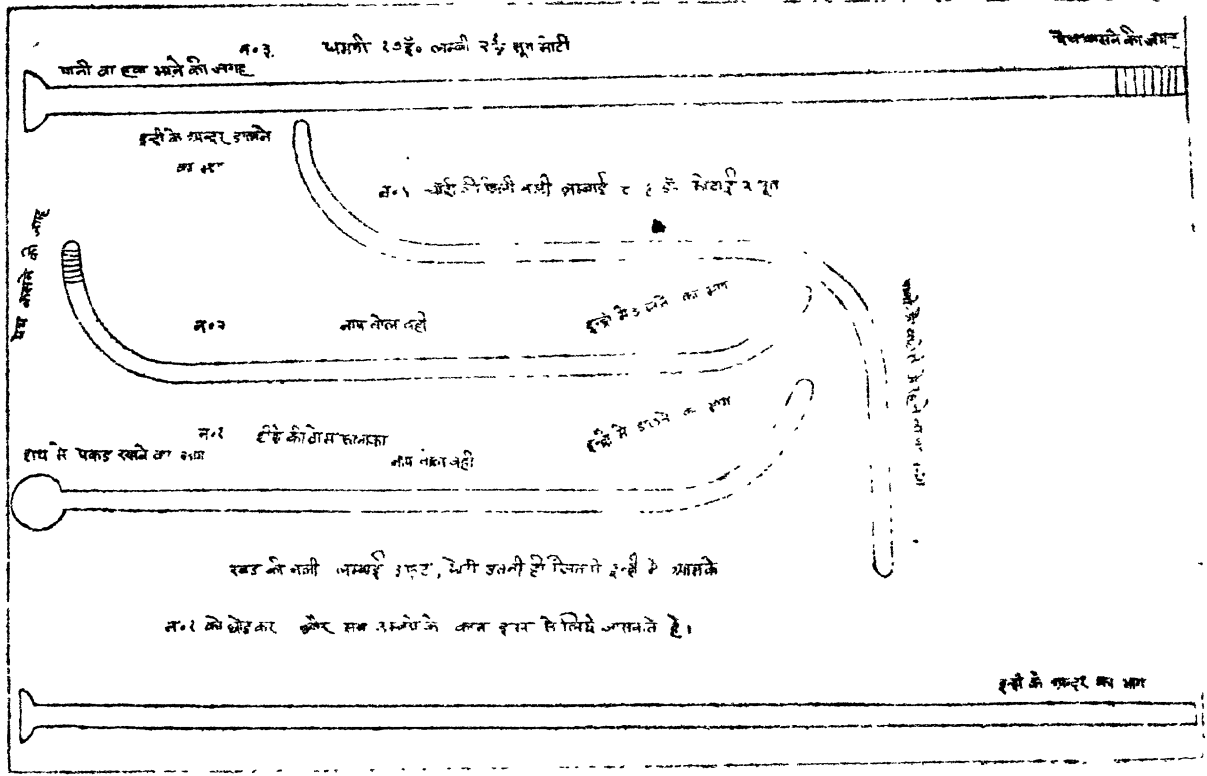 न०३ धमनी १०इं० लम्बी २½ सूत मोटी
पेच कसने की जगह
पानी वा हवा भरने की जगह
इन्द्री के अन्दर डालने
का भाग
न०१ नली लम्बाई मोटाई २ सूत
पेच कसने की जगह
न०२ नाप तोल वही
इन्द्री में डालने का भाग
न०१ सीसे की ठोस सलाका
हाथ से पकड रखने का भाग
नाप तोल वही
इन्द्री में डालने का भाग
रबड की नली लम्बाई ३फुट, मोटी इतनी ही जितनी इन्द्री में आसके
न०१ को छोडकर और सब के काम इस से लिये जासकते है।
इन्द्री के अन्दर का भाग